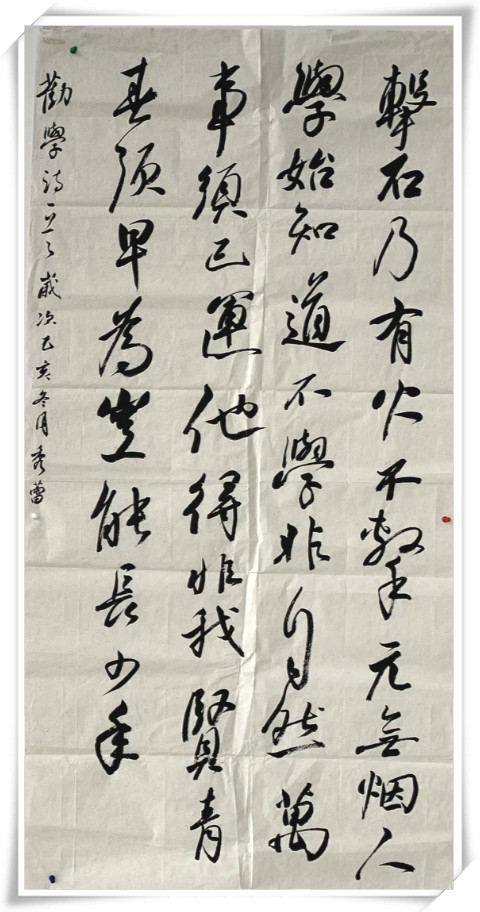 擊石乃有火不擊元無烟人
學始知道不學非自然萬
事須己運他得非我賢青
春須早為豈能長少年
勸學詩一首歲次己亥冬月秀蕾